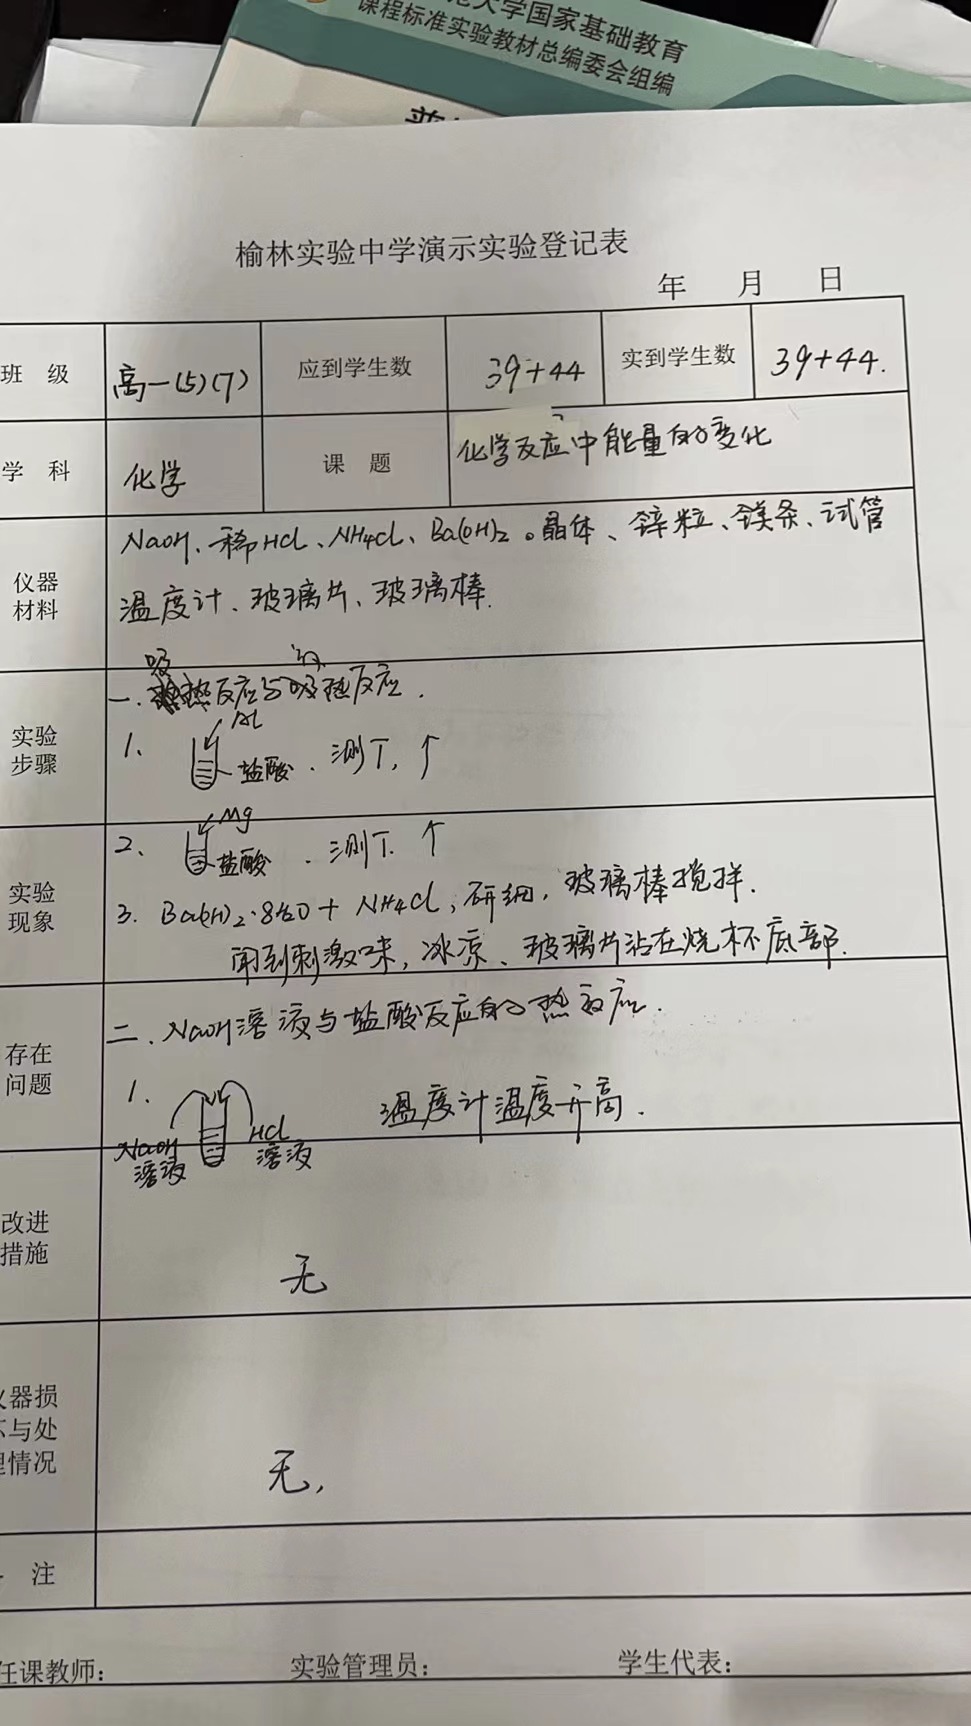 大学国家基础教育
课程标准实验教材总编委会组编
榆林实验中学演示实验登记表
年 月 日
班 级 高一(5)(7) 应到学生数 39+44 实到学生数 39+44.
学 科 化学 课 题 化学反应中能量的变化
仪器材料 NaOH、稀HCl、NH4Cl、Ba(OH)2。晶体、锌粒、镁条、试管
温度计、玻璃片、玻璃棒.
吸 放
一.热反应与吸热反应.
实验步骤
1、 Al 盐酸 . 测T. ↑
2、 Mg 盐酸 . 测T. ↑
实验现象
3. Ba(OH)2·8H2O + NH4Cl, 研细, 玻璃棒搅拌.
闻到刺激味, 冰凉、玻璃片沾在烧杯底部.
存在问题
二. NaOH溶液与盐酸反应的热效应.
1. NaOH溶液 HCl溶液 温度计温度升高.
改进措施 无
器损
与处
情况 无,
注
任课教师: 实验管理员: 学生代表: